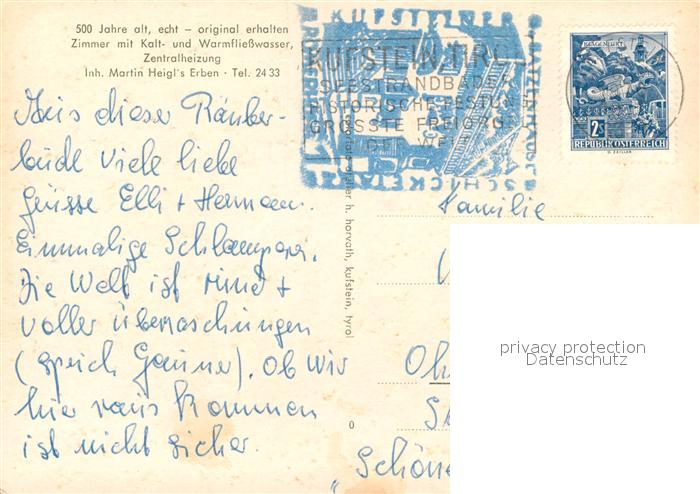 500 Jahre alt, echt – original erhalten
Zimmer mit Kalt- und Warmfließwasser,
Zentralheizung
Inh. Martin Heigl's Erben · Tel. 24 33
KUFSTEINER
BATZENHÄUSL
KUFSTEIN, TIROL
SEESTRANDBÄDER
HISTORISCHE FESTUNG
GRÖSSTE FREIORGEL
DER WELT
KLAGENFURT
2 S
REPUBLIK ÖSTERREICH
Aus dieser Räuber-
bude viele liebe
Grüsse Elli + Hermann.
Einmalige Schlamperei.
Die Welt ist rund +
voller überraschungen
(sprich Gauner). Ob wir
hier raus kommen
ist nicht sicher.
h. horvath, kufstein, tyrol
Familie
privacy protection
Datenschutz
0
"Schöne